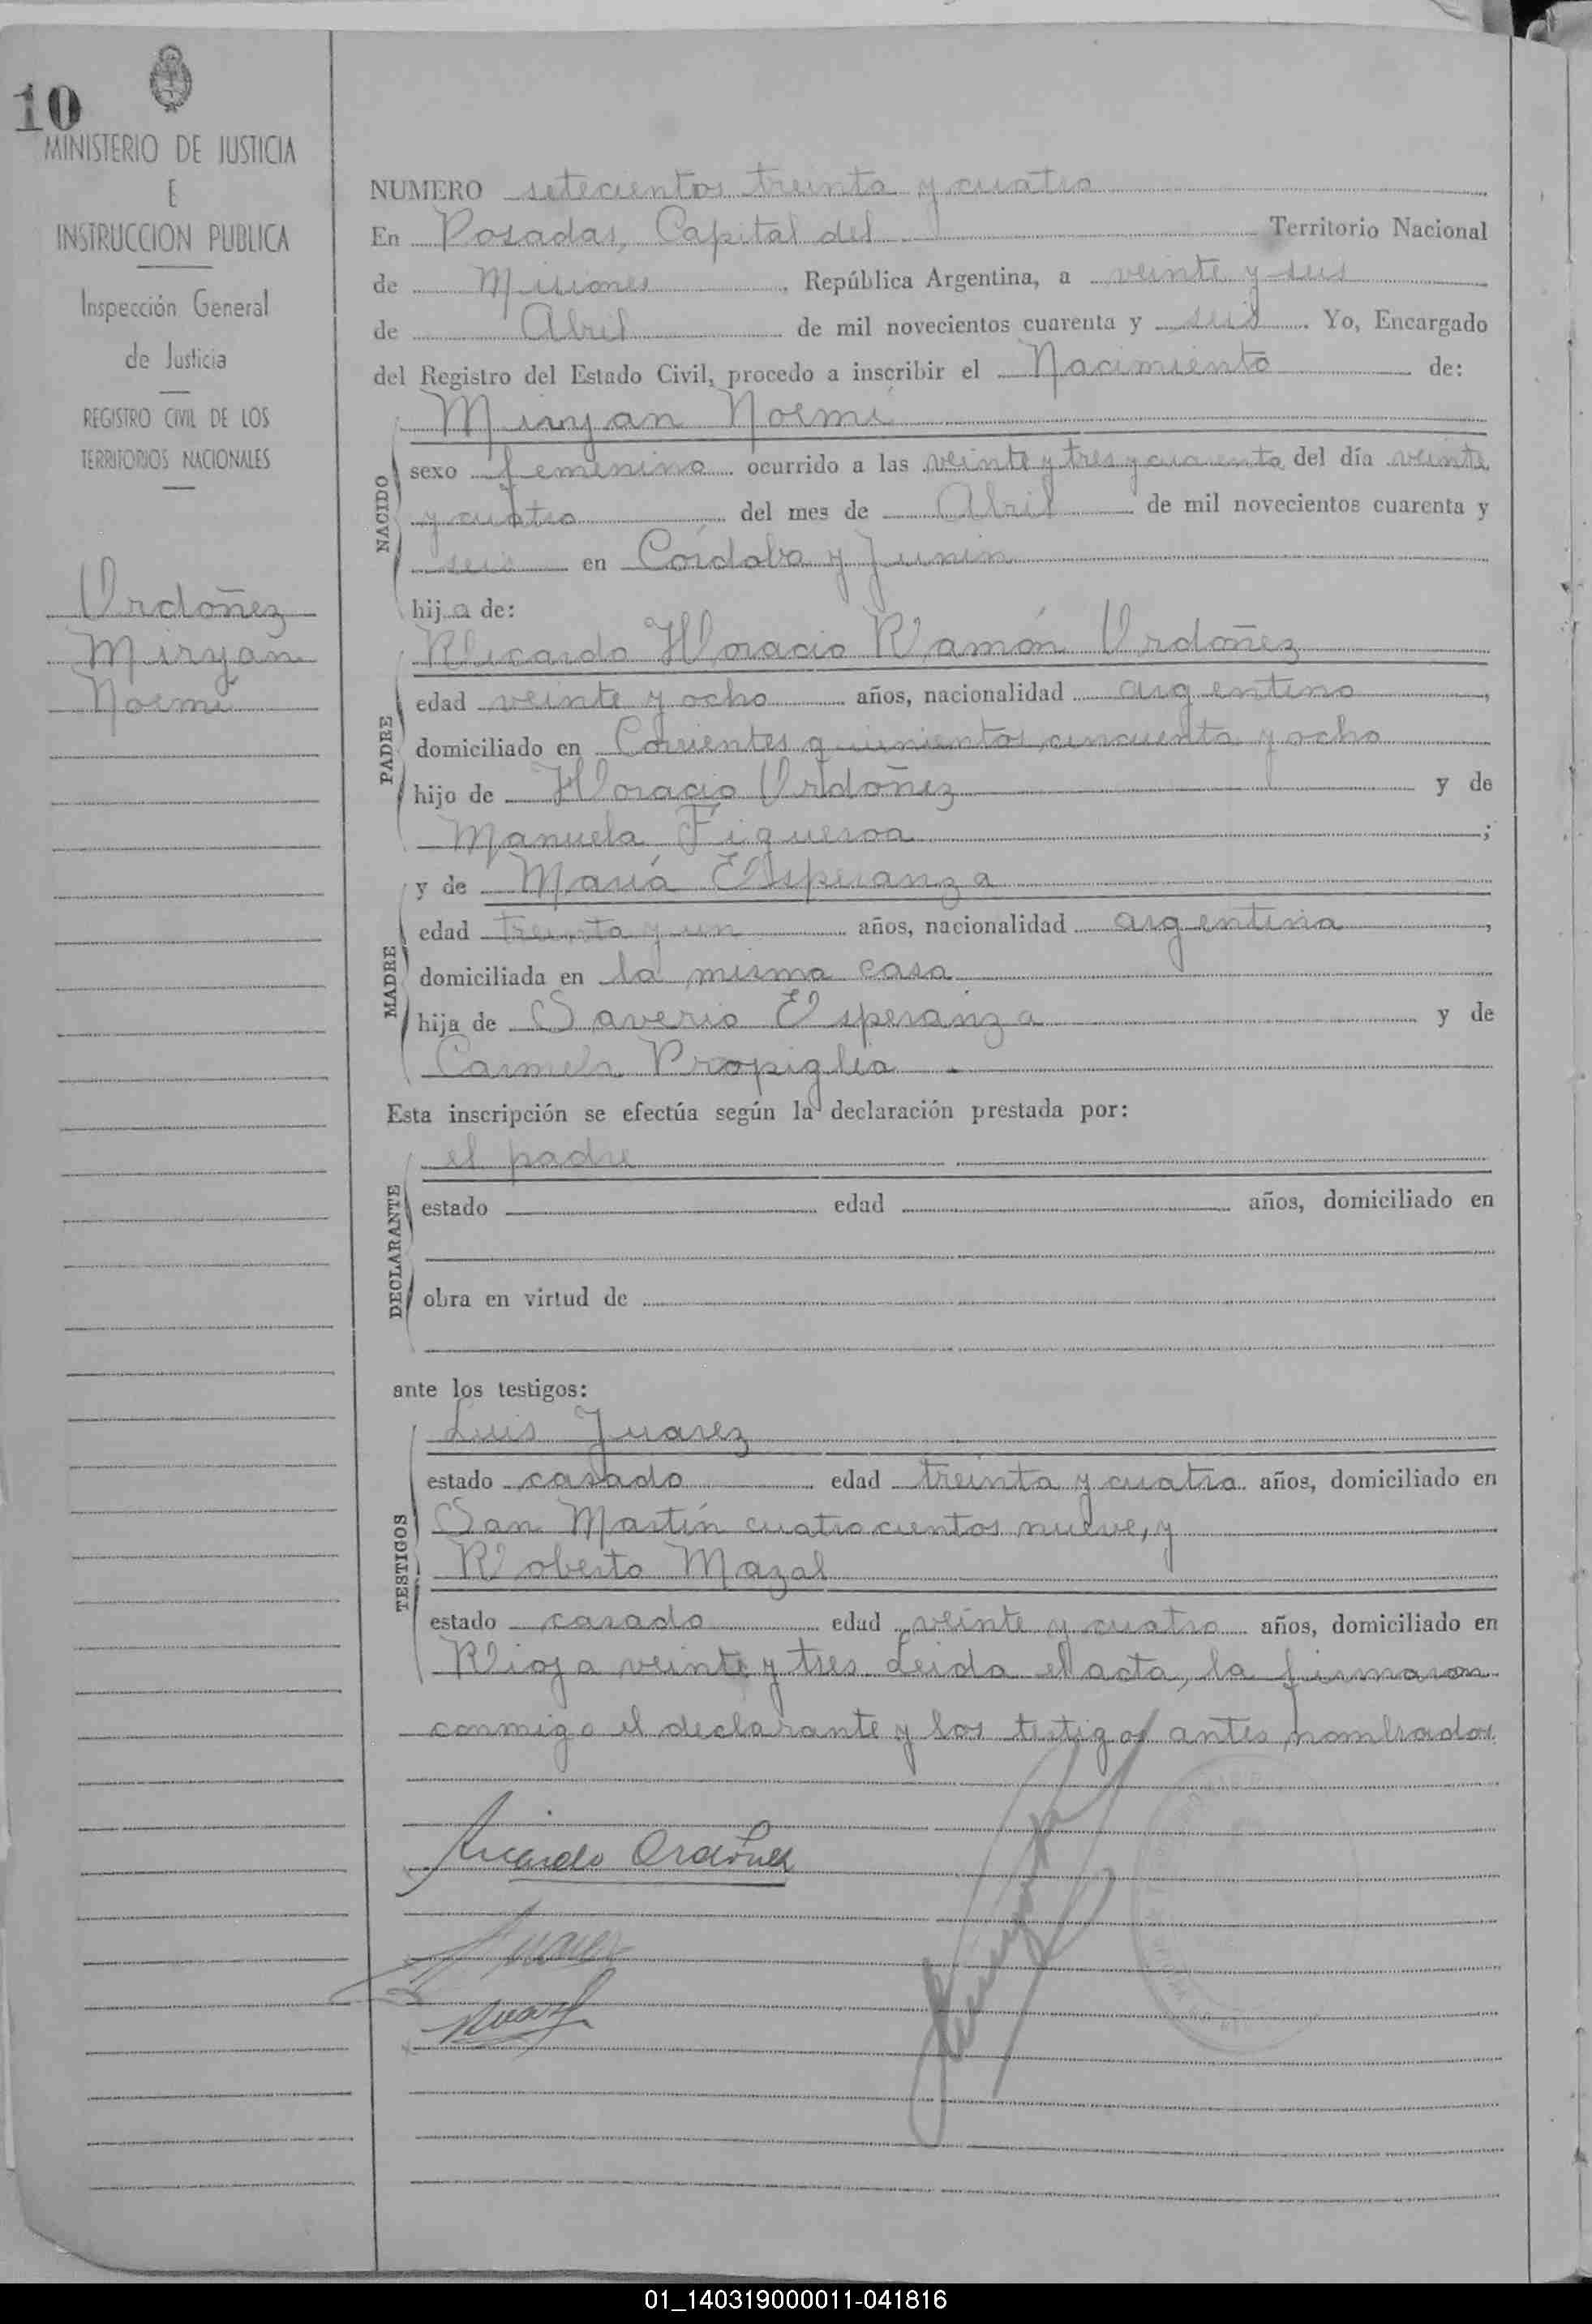 10
MINISTERIO DE JUSTICIA
E
INSTRUCCION PUBLICA
Inspección General
de Justicia
REGISTRO CIVIL DE LOS
TERRITORIOS NACIONALES
Ordoñez
Miryan
Noemí
NUMERO setecientos treinta y cuatro
En Posadas, Capital del Territorio Nacional
de Misiones, República Argentina, a veinte y seis
de Abril de mil novecientos cuarenta y seis. Yo, Encargado
del Registro del Estado Civil, procedo a inscribir el Nacimiento de:
Miryan Noemí
NACIDO
sexo femenino ocurrido a las veinte y tres y cuarenta del día veinte
y cuatro del mes de Abril de mil novecientos cuarenta y
seis en Córdoba y Junin
hija de:
PADRE
Ricardo Horacio Ramón Ordoñez
edad veinte y ocho años, nacionalidad argentino,
domiciliado en Corrientes quinientos cincuenta y ocho
hijo de Horacio Ordoñez y de
Manuela Figueroa;
MADRE
y de María Esperanza
edad treinta y un años, nacionalidad argentina,
domiciliada en la misma casa
hija de Saverio Esperanza y de
Carmela Propiglia
Esta inscripción se efectúa según la declaración prestada por:
DECLARANTE
el padre
estado edad años, domiciliado en
obra en virtud de
ante los testigos:
TESTIGOS
Luis Juarez
estado casado edad treinta y cuatro años, domiciliado en
San Martín cuatrocientos nueve, y
Roberto Mazal
estado casado edad veinte y cuatro años, domiciliado en
Rioja veinte y tres Leida el acta, la firmaron
conmigo el declarante y los testigos antes nombrados
Ricardo Ordoñez
01_140319000011-041816